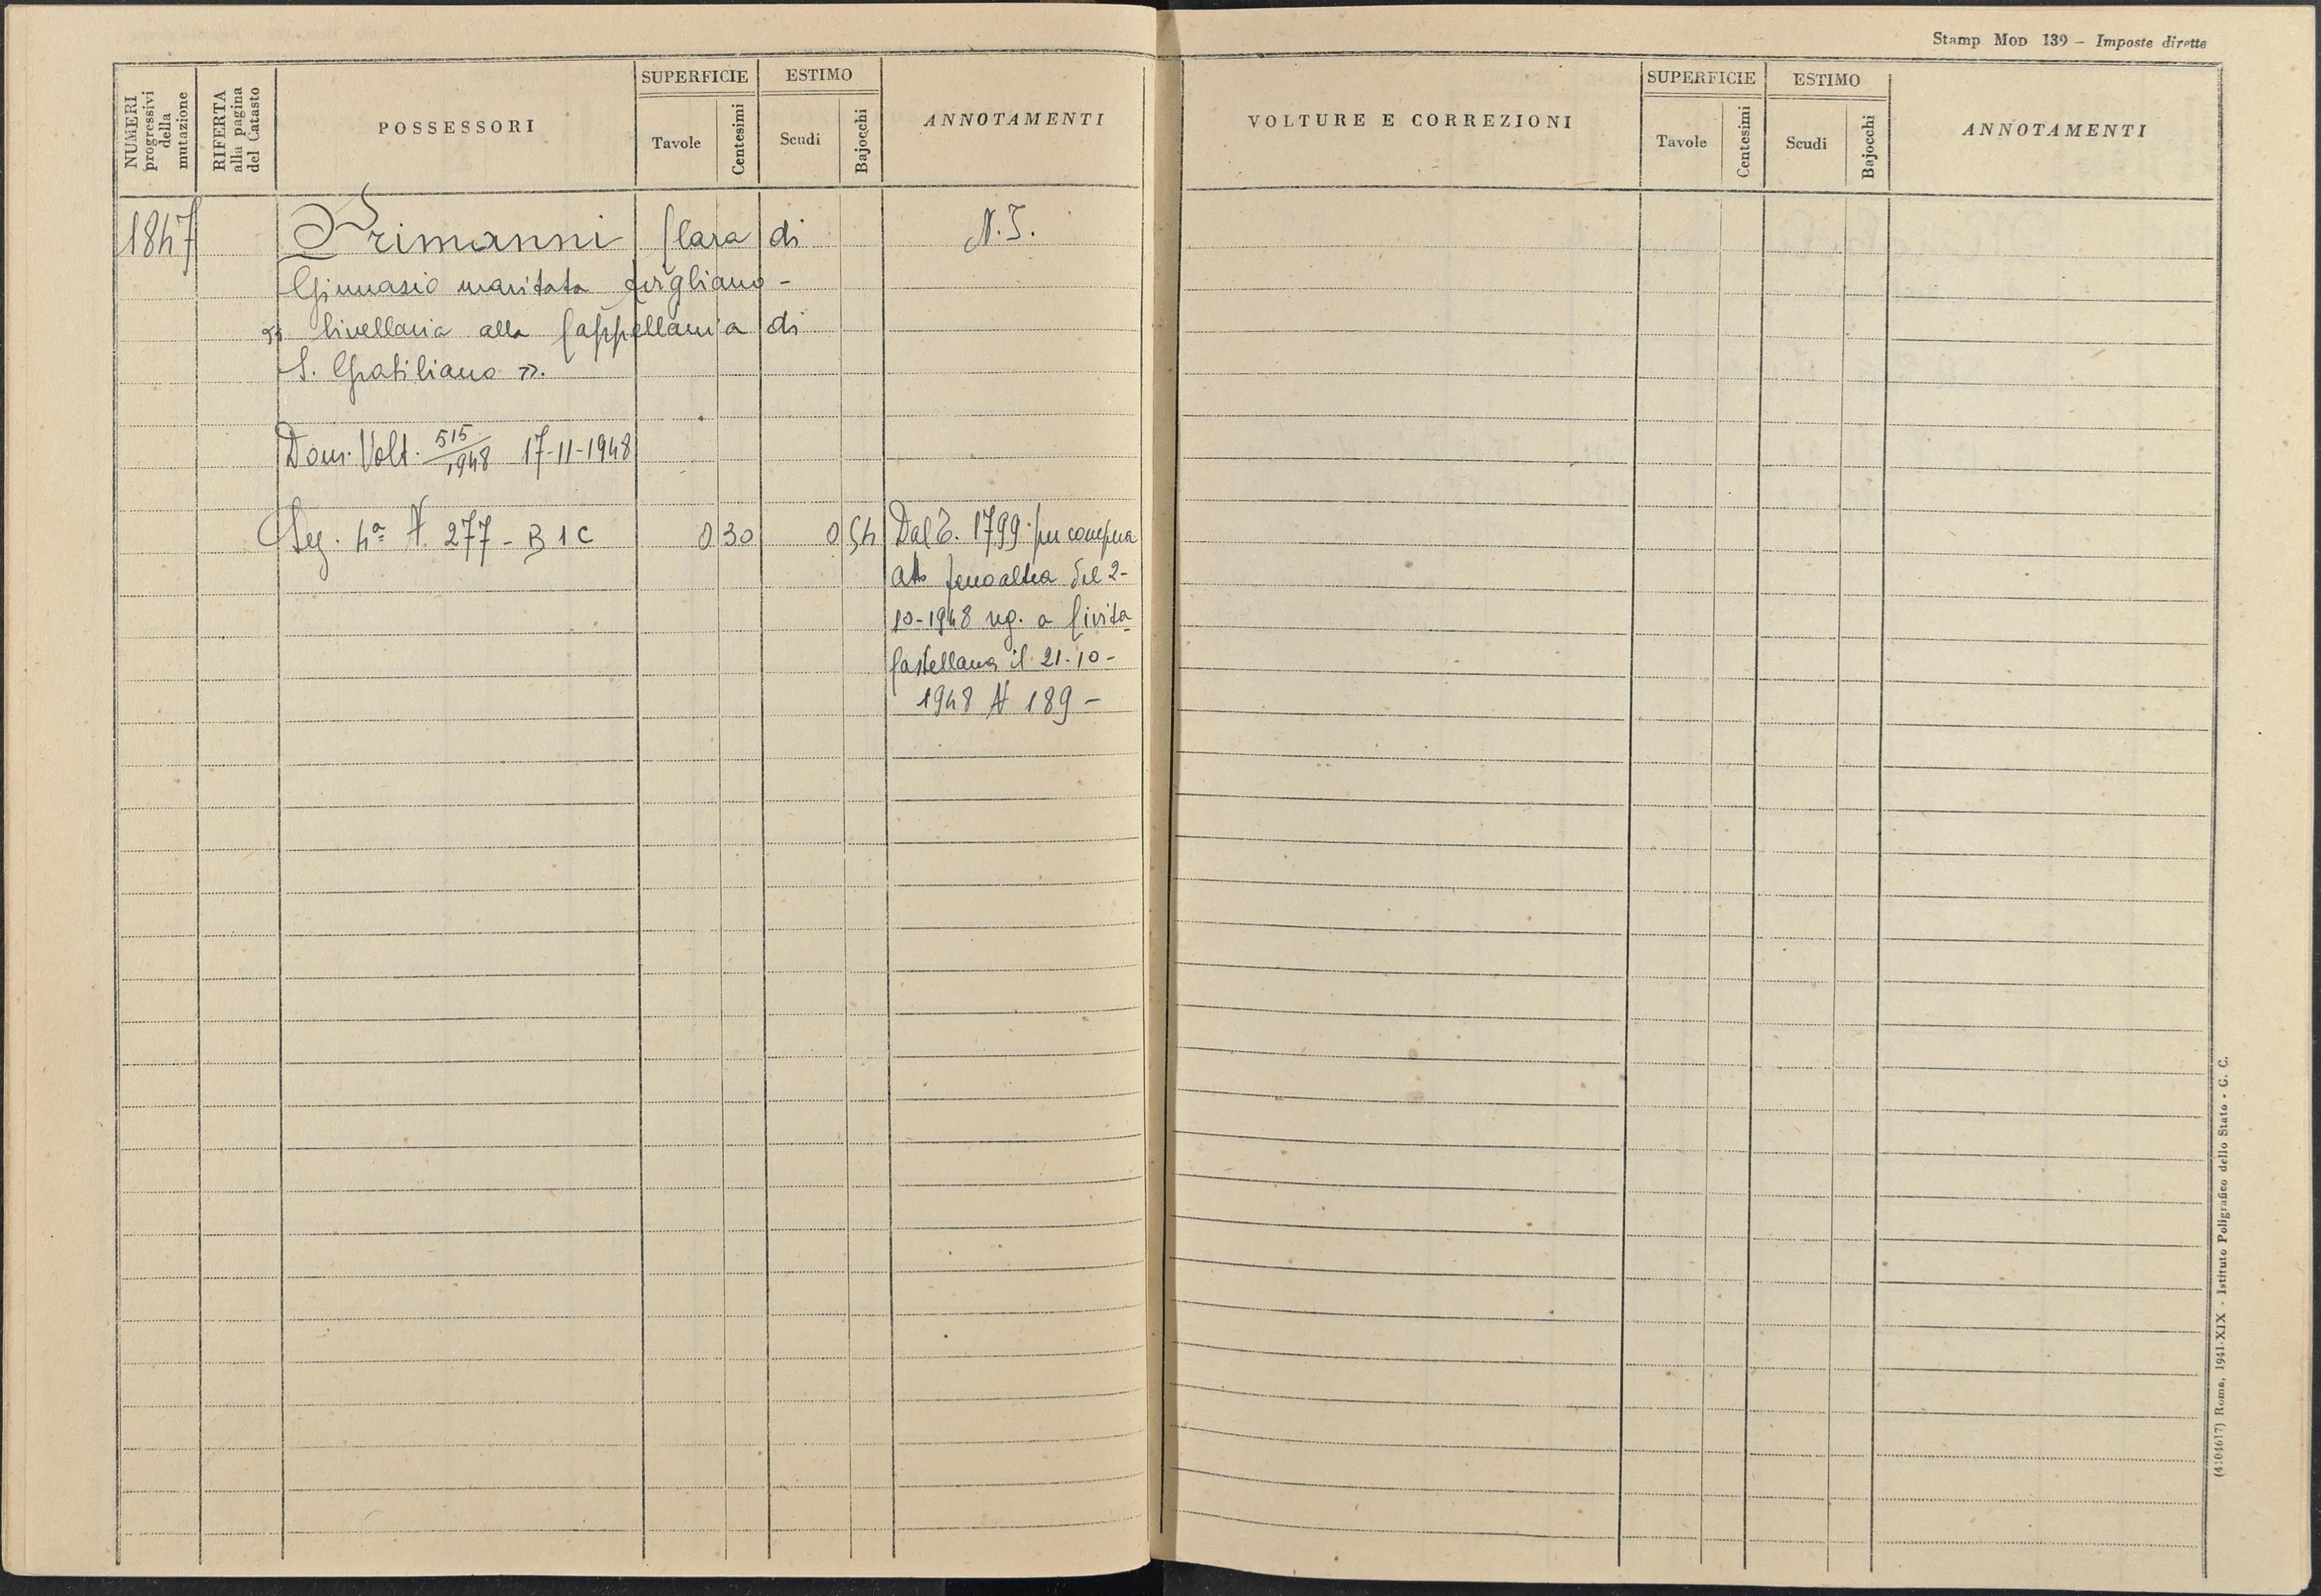 Stamp Mod 139 – Imposte dirette
NUMERI progressivi della mutazione
RIFERTA alla pagina del Catasto
POSSESSORI
SUPERFICIE
Tavole
Centesimi
ESTIMO
Scudi
Bajocchi
ANNOTAMENTI
VOLTURE E CORREZIONI
SUPERFICIE
Tavole
Centesimi
ESTIMO
Scudi
Bajocchi
ANNOTAMENTI
1847 Frimanni Clara di
Ginnasio maritata -
« livellaria alla Cappellania di
S. Gratiliano ».
N.I.
Dom. Volt. 515/1948 17-11-1948
Seg. 4ª N 277 - B 1 C 0 30 0 54
Dal N. 1799 per compra
atto Fenoaltea del 2-
10-1948 reg. a Civita
Castellana il 21-10-
1948 N 189 -
(4104617) Roma, 1941-XIX - Istituto Poligrafico dello Stato - G. C.